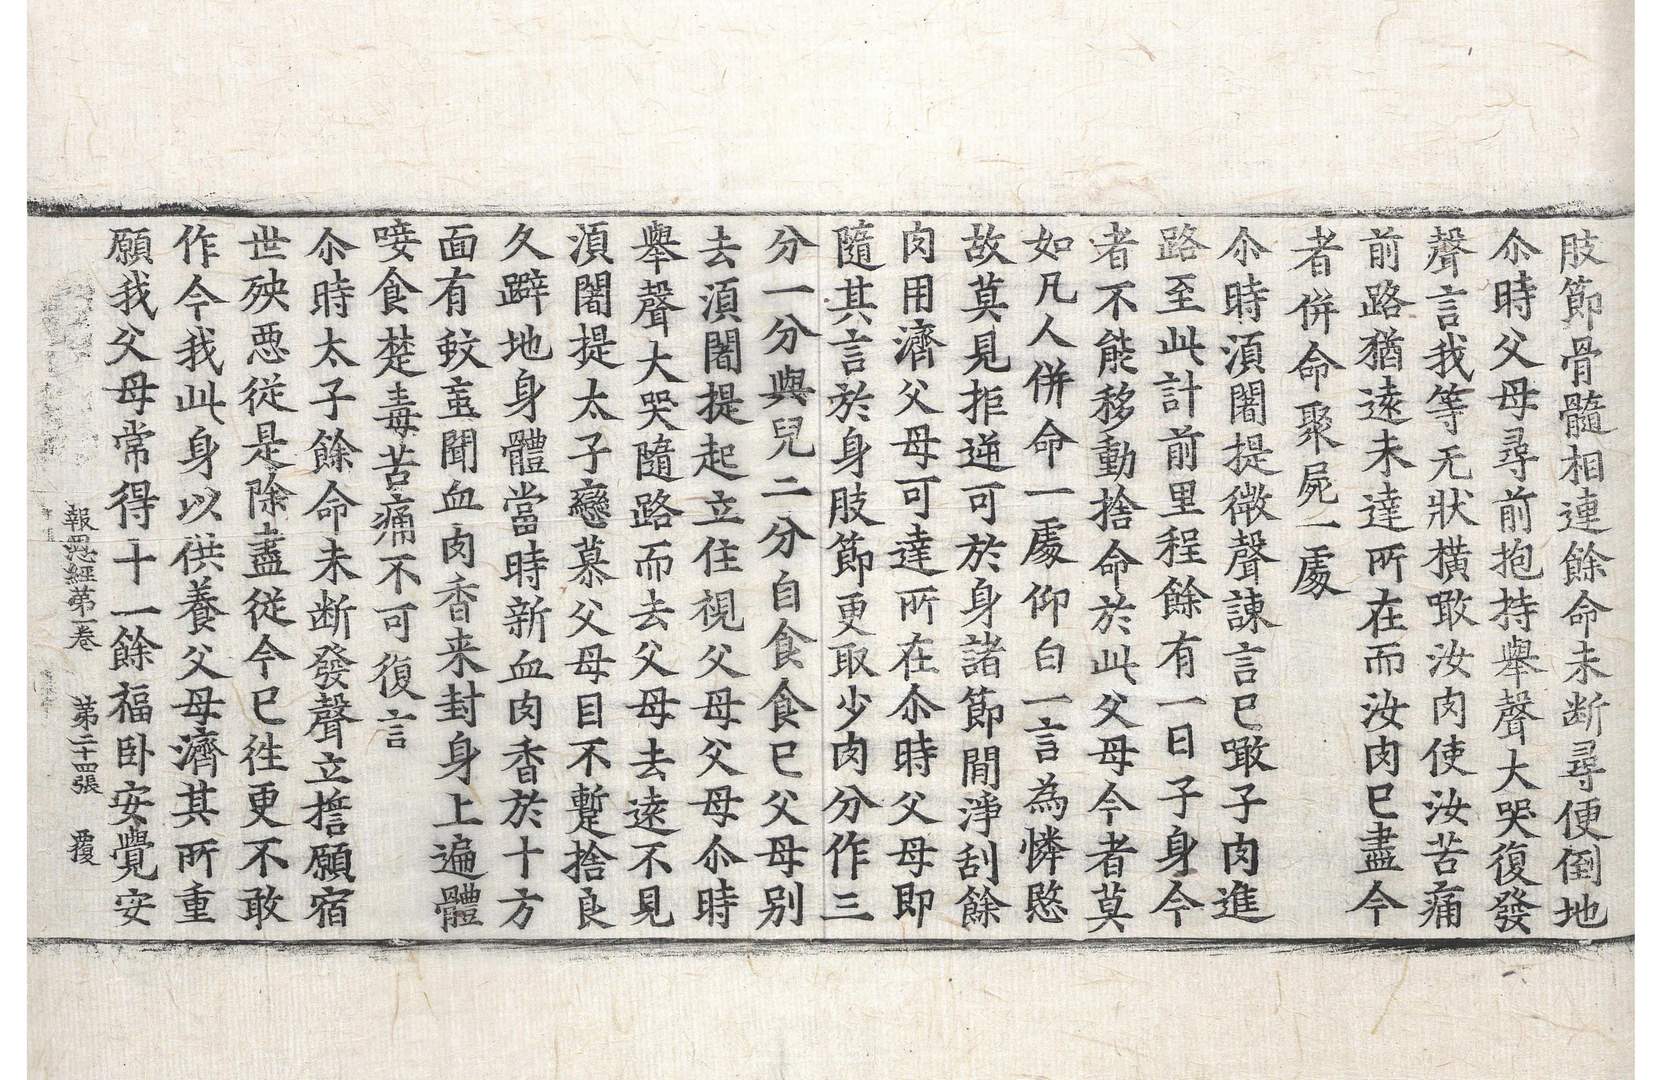 肢節骨髓相連餘命未断尋便倒地
尒時父母尋前抱持舉聲大哭復發
聲言我等无狀橫噉汝肉使汝苦痛
前路猶遠未達所在而汝肉已盡今
者併命聚屍一處
尒時湏闍提微聲諫言已噉子肉進
路至此計前里程餘有一日子身今
者不能移動捨命於此父母今者莫
如凡人併命一處仰白一言為憐愍
故莫見拒逆可於身諸節間淨刮餘
肉用濟父母可達所在尒時父母即
隨其言於身肢節更取少肉分作三
分一分與兒二分自食食已父母别
去湏闍提起立住視父母父母尒時
舉聲大哭隨路而去父母去遠不見
湏闍提太子戀慕父母目不蹔捨良
久躃地身體當時新血肉香於十方
面有蚊䖟聞血肉香来封身上遍體
唼食楚毒苦痛不可復言
尒時太子餘命未断發聲立擔願宿
世殃悪從是除盡從今已徃更不敢
作今我此身以供養父母濟其所重
願我父母常得十一餘福卧安覺安
報恩經第一卷　第二十四張　覆